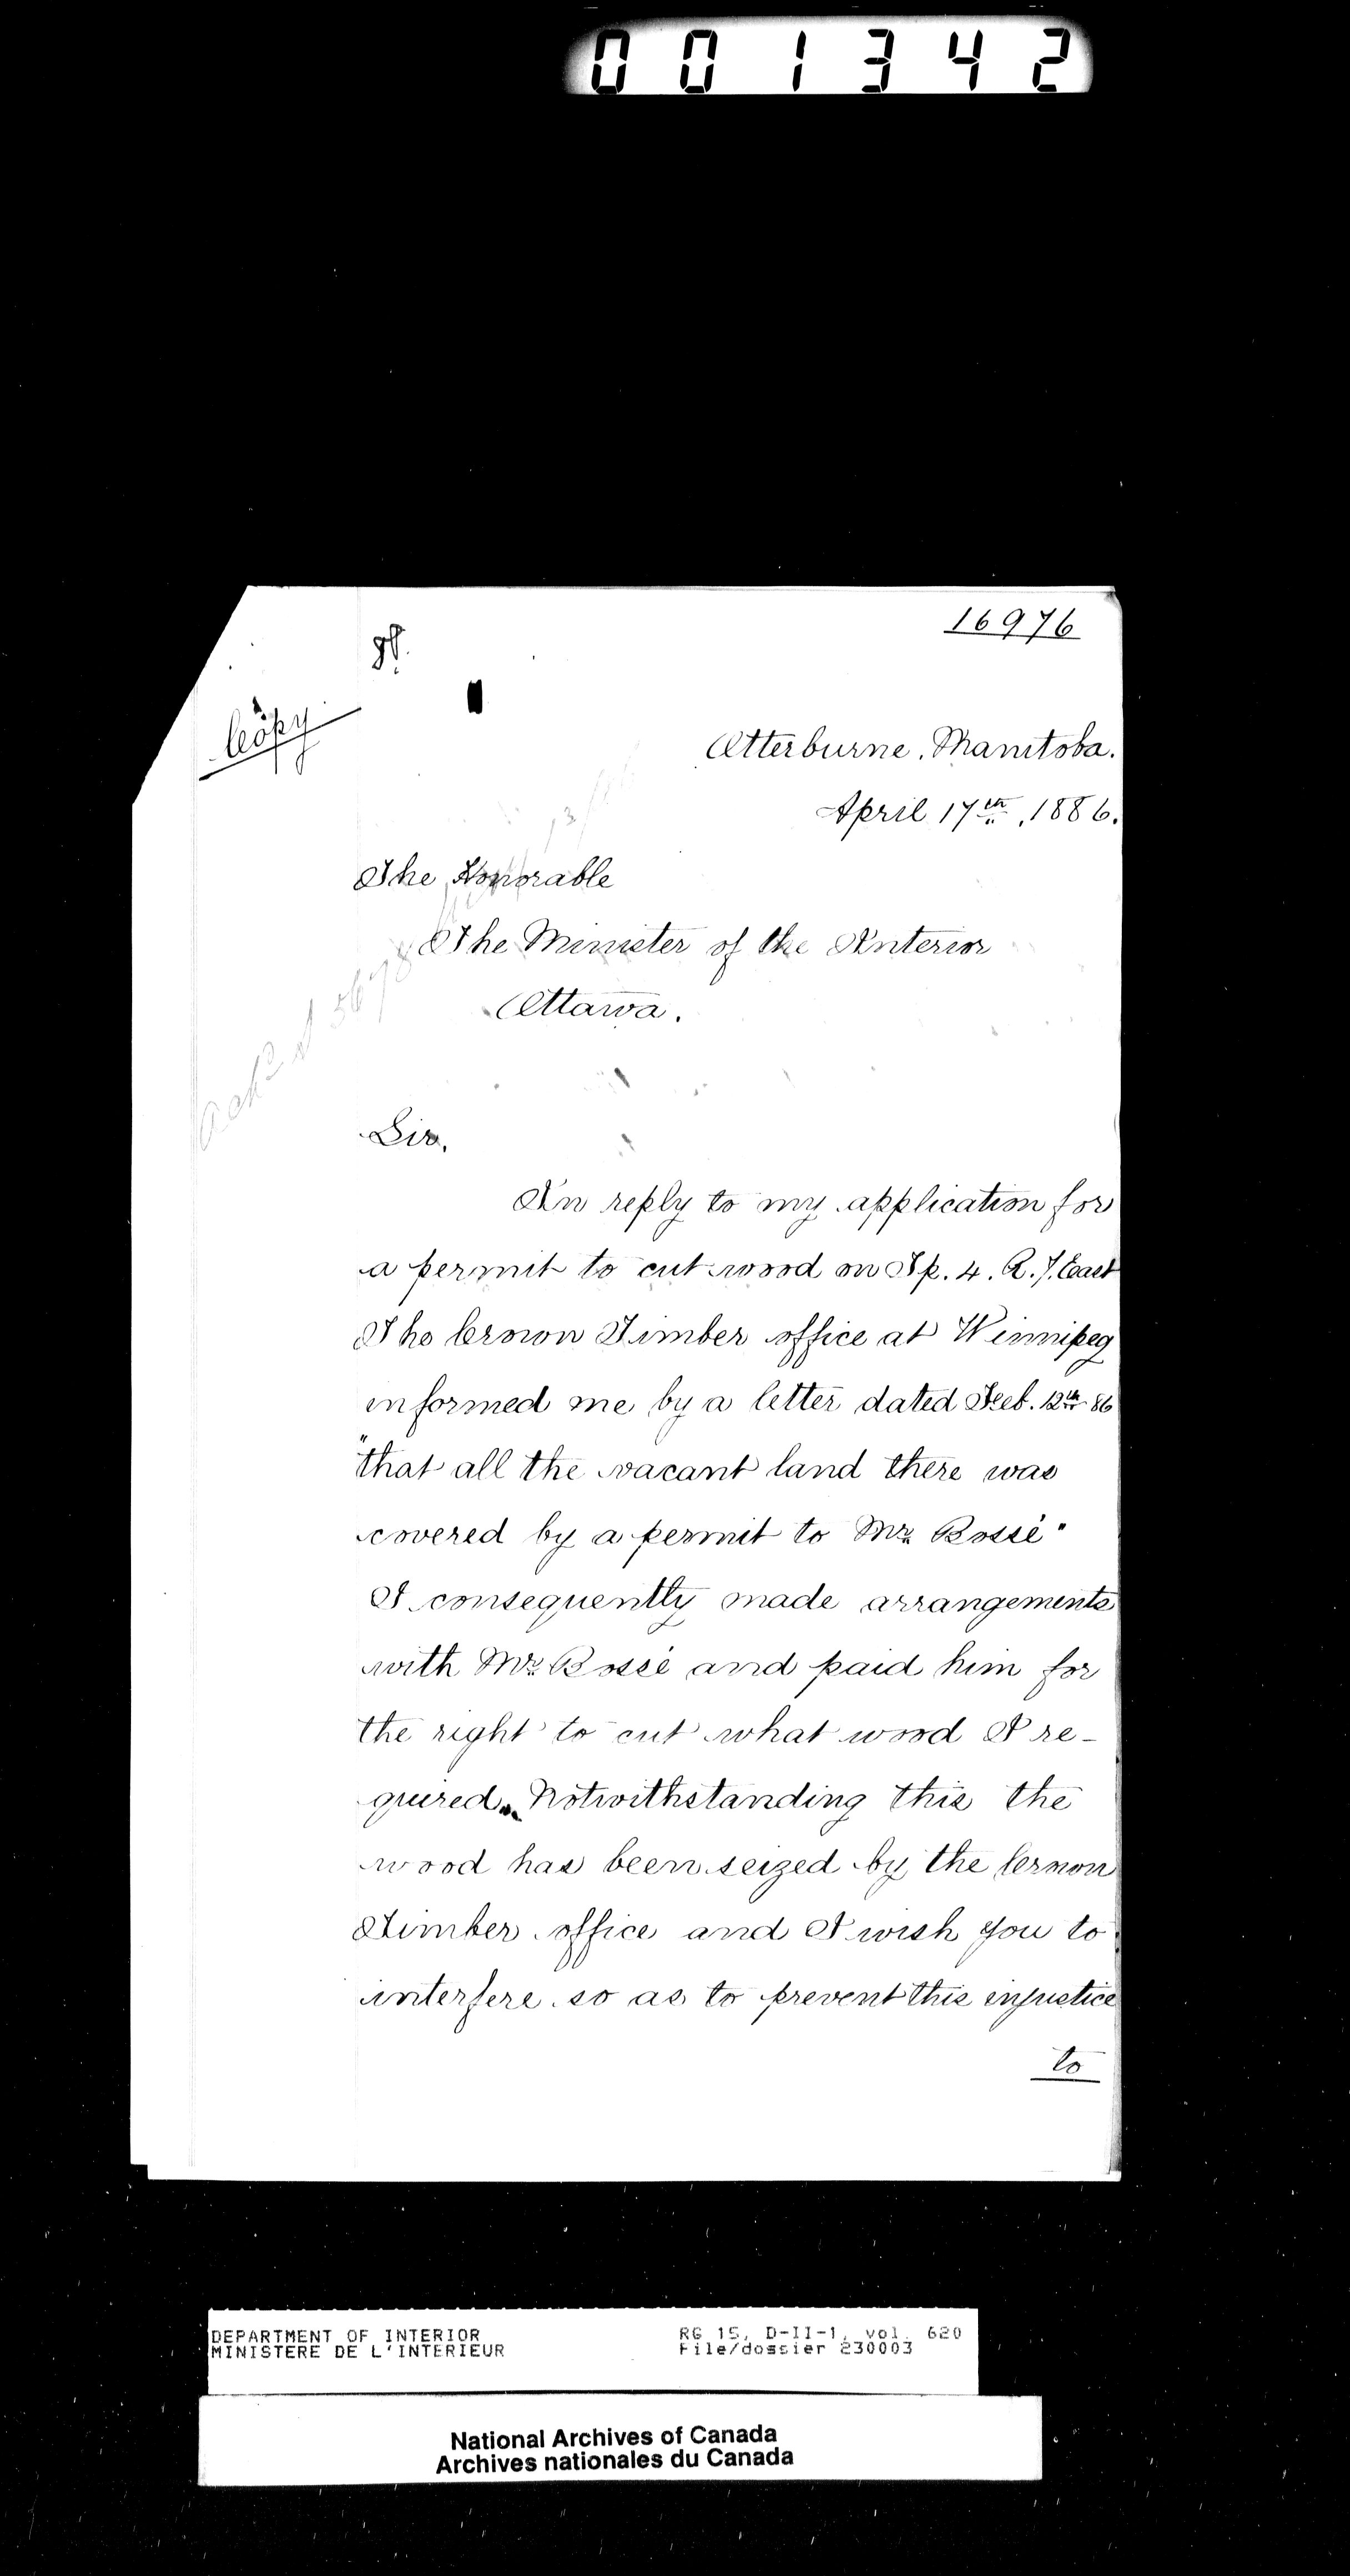 001342
16976
Copy
Otterburne, Manitoba.
April 17th, 1886.
The Honorable
The Minister of the Interior
Ottawa.
Sir,
In reply to my application for
a permit to cut wood on Tp. 4. R. 7. East
The Crown Timber office at Winnipeg
informed me by a letter dated Feb. 12th 86
"that all the vacant land there was
covered by a permit to Mr. Bossé"
I consequently made arrangements
with Mr. Bossé and paid him for
the right to cut what wood I re-
quired. Notwithstanding this the
wood has been seized by the Crown
Timber office and I wish you to
interfere so as to prevent this injustice
to
DEPARTMENT OF INTERIOR
MINISTERE DE L'INTERIEUR
RG 15, D-II-1, vol. 620
File/dossier 230003
National Archives of Canada
Archives nationales du Canada